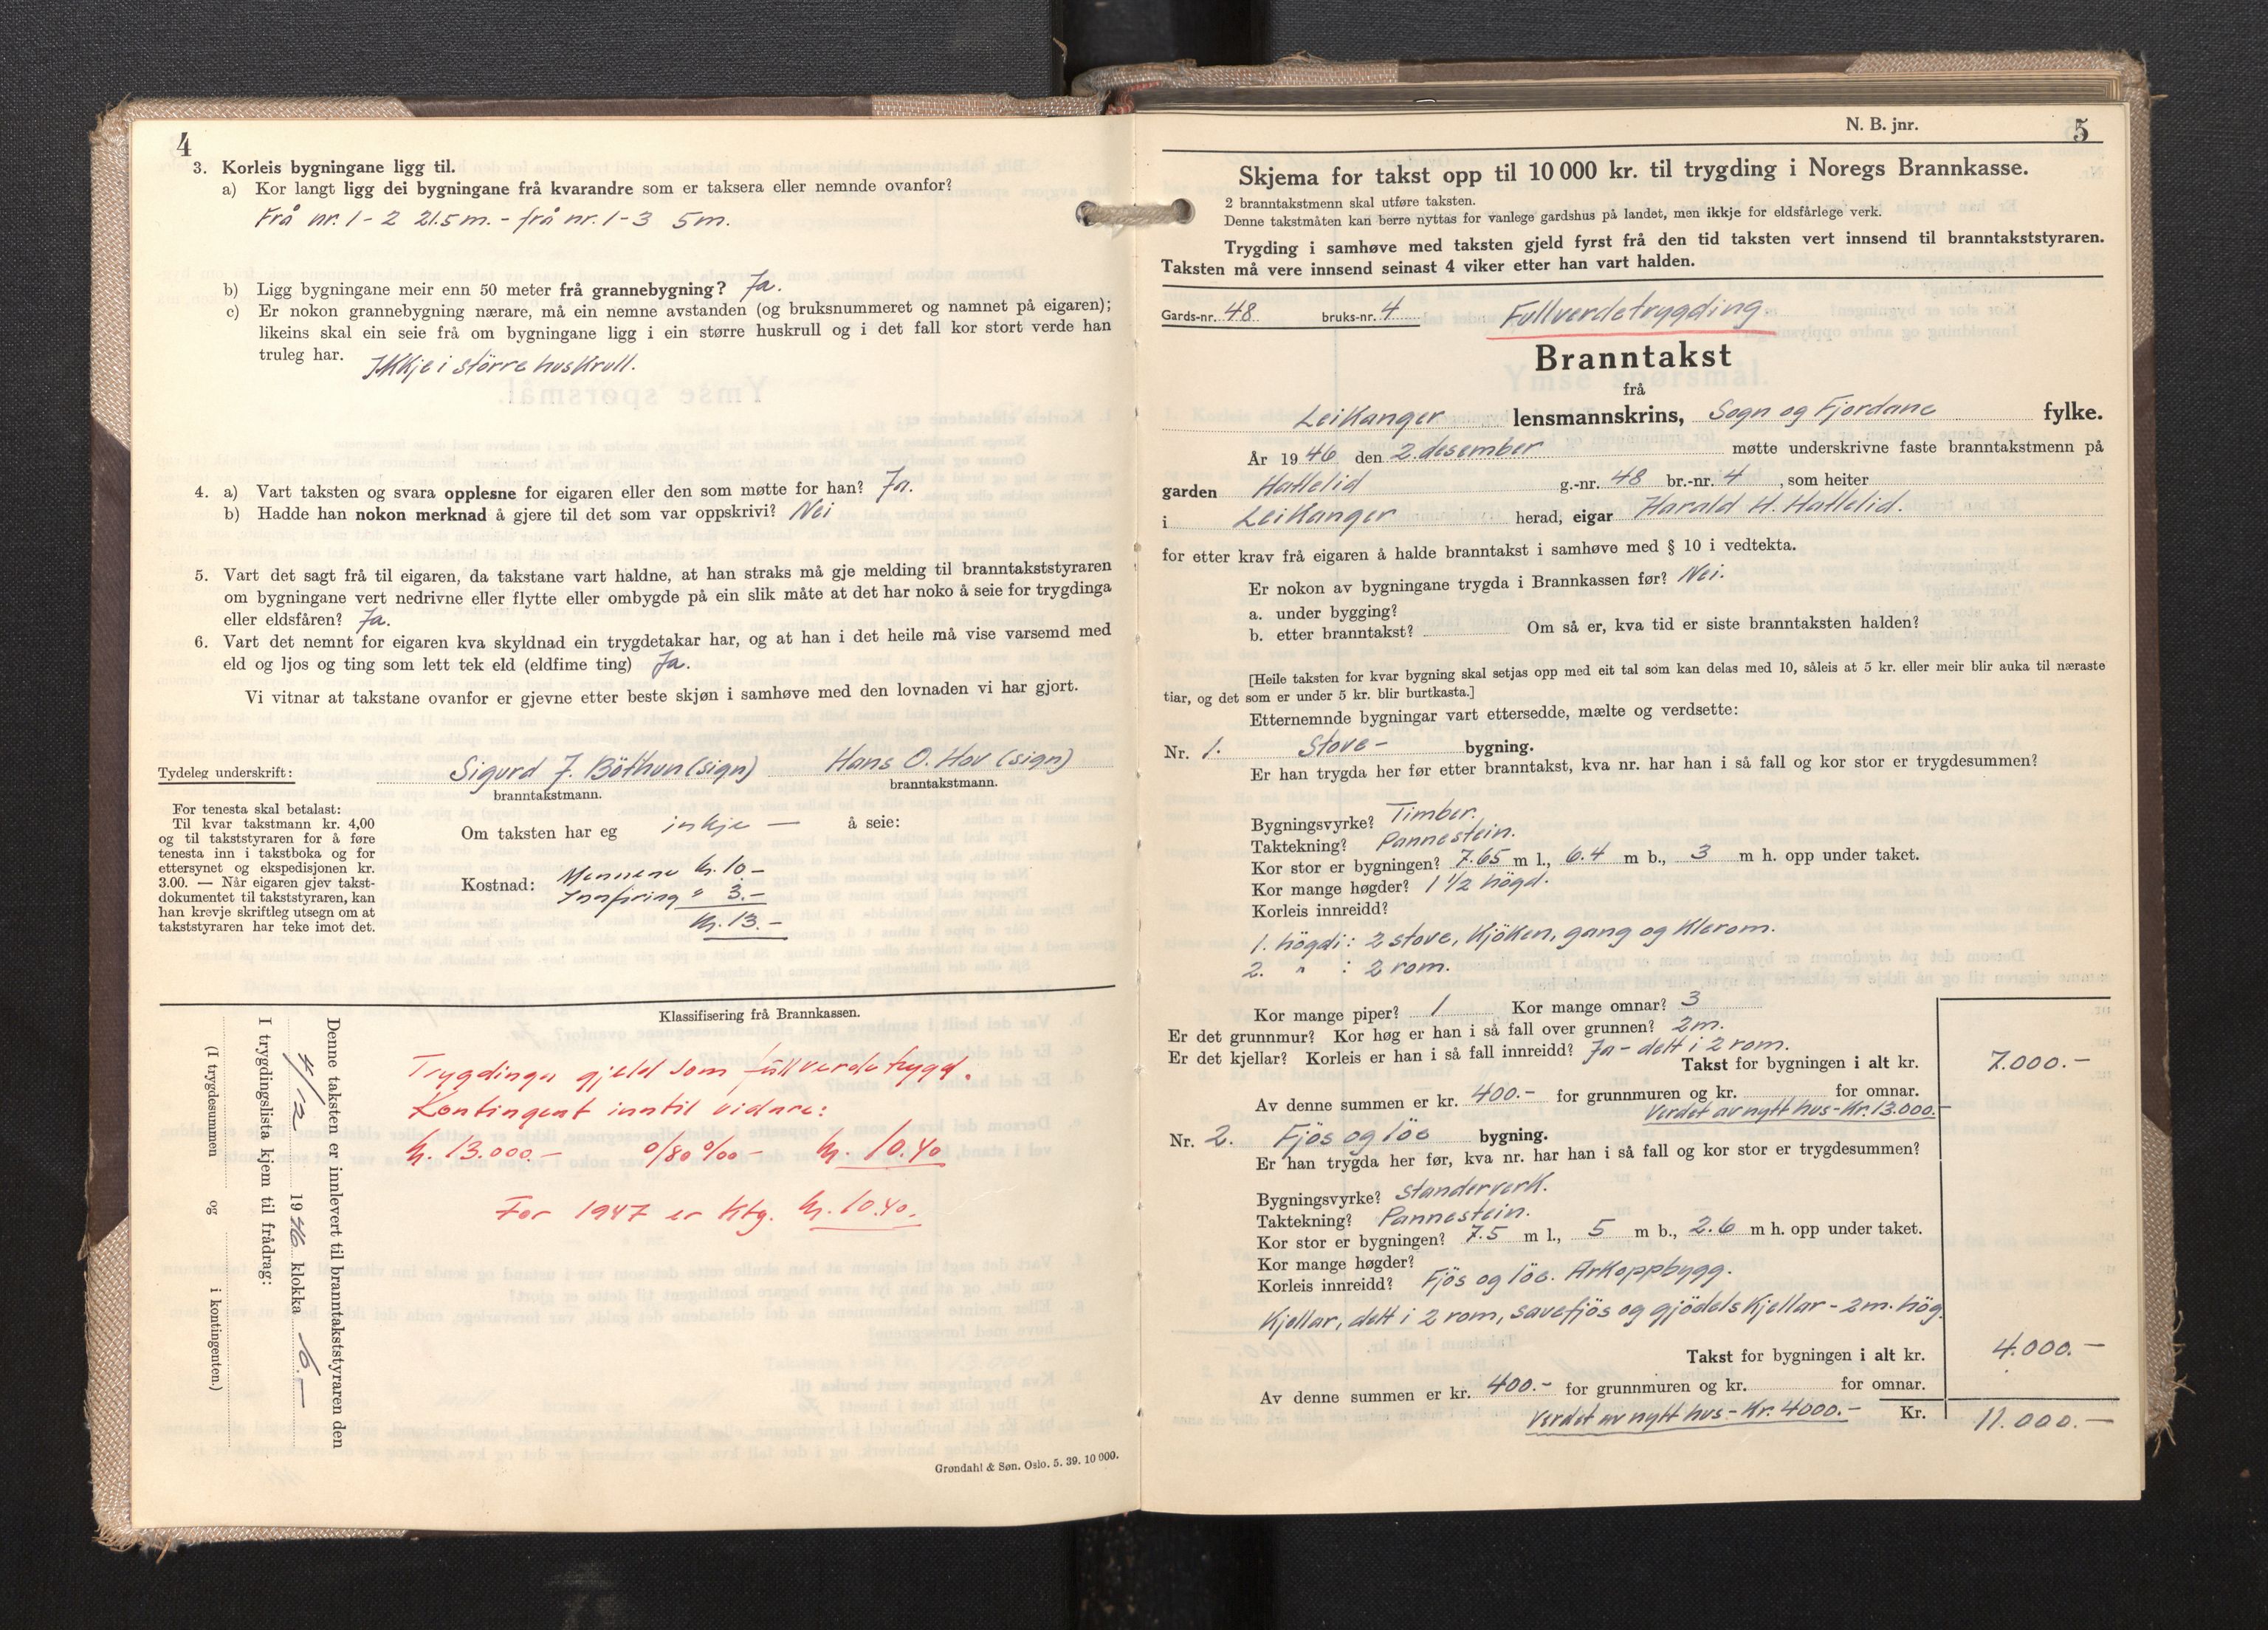 4
3. Korleis bygningane ligg til.
a) Kor langt ligg dei bygningane frå kvarandre som er taksera eller nemnde ovanfor?
Frå nr. 1 - 2 21.5 m. - frå nr. 1 - 3 5 m.
b) Ligg bygningane meir enn 50 meter frå grannebygning? Ja.
c) Er nokon grannebygning nærare, må ein nemne avstanden (og bruksnummeret og namnet på eigaren);
likeins skal ein seie frå om bygningane ligg i ein større huskrull og i det fall kor stort verde han
truleg har. Ikkje i större huskrull.
4. a) Vart taksten og svara opplesne for eigaren eller den som møtte for han? Ja.
b) Hadde han nokon merknad å gjere til det som var oppskrivi? Nei
5. Vart det sagt frå til eigaren, da takstane vart haldne, at han straks må gje melding til branntakststyraren
om bygningane vert nedrivne eller flytte eller ombygde på ein slik måte at det har noko å seie for trygdinga
eller eldsfåren? Ja.
6. Vart det nemnt for eigaren kva skyldnad ein trygdetakar har, og at han i det heile må vise varsemd med
eld og ljos og ting som lett tek eld (eldfime ting) Ja.
Vi vitnar at takstane ovanfor er gjevne etter beste skjøn i samhøve med den lovnaden vi har gjort.
Tydeleg underskrift: Sigurd J. Böthun (sign) Hans O. Hov (sign)
branntakstmann. branntakstmann.
For tenesta skal betalast:
Til kvar takstmann kr. 4,00
og til takststyraren for å føre
tenesta inn i takstboka og for
ettersynet og ekspedisjonen kr.
3.00. — Når eigaren gjev takst-
dokumentet til takststyraren, kan
han krevje skriftleg utsegn om at
takststyraren har teke imot det.
Om taksten har eg inkje — å seie:
Kostnad: Mennene kr. 10 -
Innføring " 3. -
kr. 13. -
Klassifisering frå Brannkassen.
Trygdinga gjeld som fullverdetrygd.
Kontingent inntil vidare:
kr. 13.000.- o/80 o/oo - kr. 10.40
For 1947 er ktg. kr. 10.40.
Denne taksten er innlevert til branntakststyraren den
4/12 1946 klokka 6.—
I trygdingslista kjem til frådrag:
(I trygdesummen og i kontingenten.)
Grøndahl & Søn. Oslo. 5. 39. 10 000.
N. B. jnr. 5
Skjema for takst opp til 10 000 kr. til trygding i Noregs Brannkasse.
2 branntakstmenn skal utføre taksten.
Denne takstmåten kan berre nyttas for vanlege gardshus på landet, men ikkje for eldsfårlege verk.
Trygding i samhøve med taksten gjeld fyrst frå den tid taksten vert innsend til branntakststyraren.
Taksten må vere innsend seinast 4 viker etter han vart halden.
Gards-nr. 48 bruks-nr. 4 Fullverdetrygding.
Branntakst
frå
Leikanger lensmannskrins, Sogn og Fjordane fylke.
År 1946 den 2. desember møtte underskrivne faste branntakstmenn på
garden Hatlelid g.-nr. 48 br.-nr. 4, som heiter
i Leikanger herad, eigar Harald H. Hatlelid.
for etter krav frå eigaren å halde branntakst i samhøve med § 10 i vedtekta.
Er nokon av bygningane trygda i Brannkassen før? Nei.
a. under bygging?
b. etter branntakst? Om så er, kva tid er siste branntaksten halden?
[Heile taksten for kvar bygning skal setjas opp med eit tal som kan delas med 10, såleis at 5 kr. eller meir blir auka til næraste
tiar, og det som er under 5 kr. blir burtkasta.]
Etternemnde bygningar vart ettersedde, mælte og verdsette:
Nr. 1. Stove - bygning.
Er han trygda her før etter branntakst, kva nr. har han i så fall og kor stor er trygdesummen?
Bygningsvyrke? Timber.
Taktekning? Pannestein.
Kor stor er bygningen? 7.65 m l., 6.4 m b., 3 m h. opp under taket.
Kor mange høgder? 1 1/2 högd.
Korleis innreidd?
1. högdi: 2 stove, kjöken, gang og klerom.
2. " : 2 rom.
Kor mange piper? 1 Kor mange omnar? 3
Er det grunnmur? Kor høg er han i så fall over grunnen? 2 m.
Er det kjellar? Korleis er han i så fall innreidd? Ja - delt i 2 rom.
Takst for bygningen i alt kr. 7.000.-
Av denne summen er kr. 400.- for grunnmuren og kr. for omnar.
Verdet av nytt hus - Kr. 13.000.-
Nr. 2. Fjös og löe bygning.
Er han trygda her før, kva nr. har han i så fall og kor stor er trygdesummen?
Bygningsvyrke? Standerverk.
Taktekning? Pannestein.
Kor stor er bygningen? 7.5 m l., 5 m b., 2.6 m h. opp under taket.
Kor mange høgder?
Korleis innreidd? Fjös og löe. Arkoppbygg.
Kjellar, delt i 2 rom, savefjös og gjödelskjellar - 2 m. hög.
Takst for bygningen i alt kr. 4.000.-
Av denne summen er kr. 400.- for grunnmuren og kr. for omnar.
Verdet av nytt hus - Kr. 4000.- Kr. 11.000.-